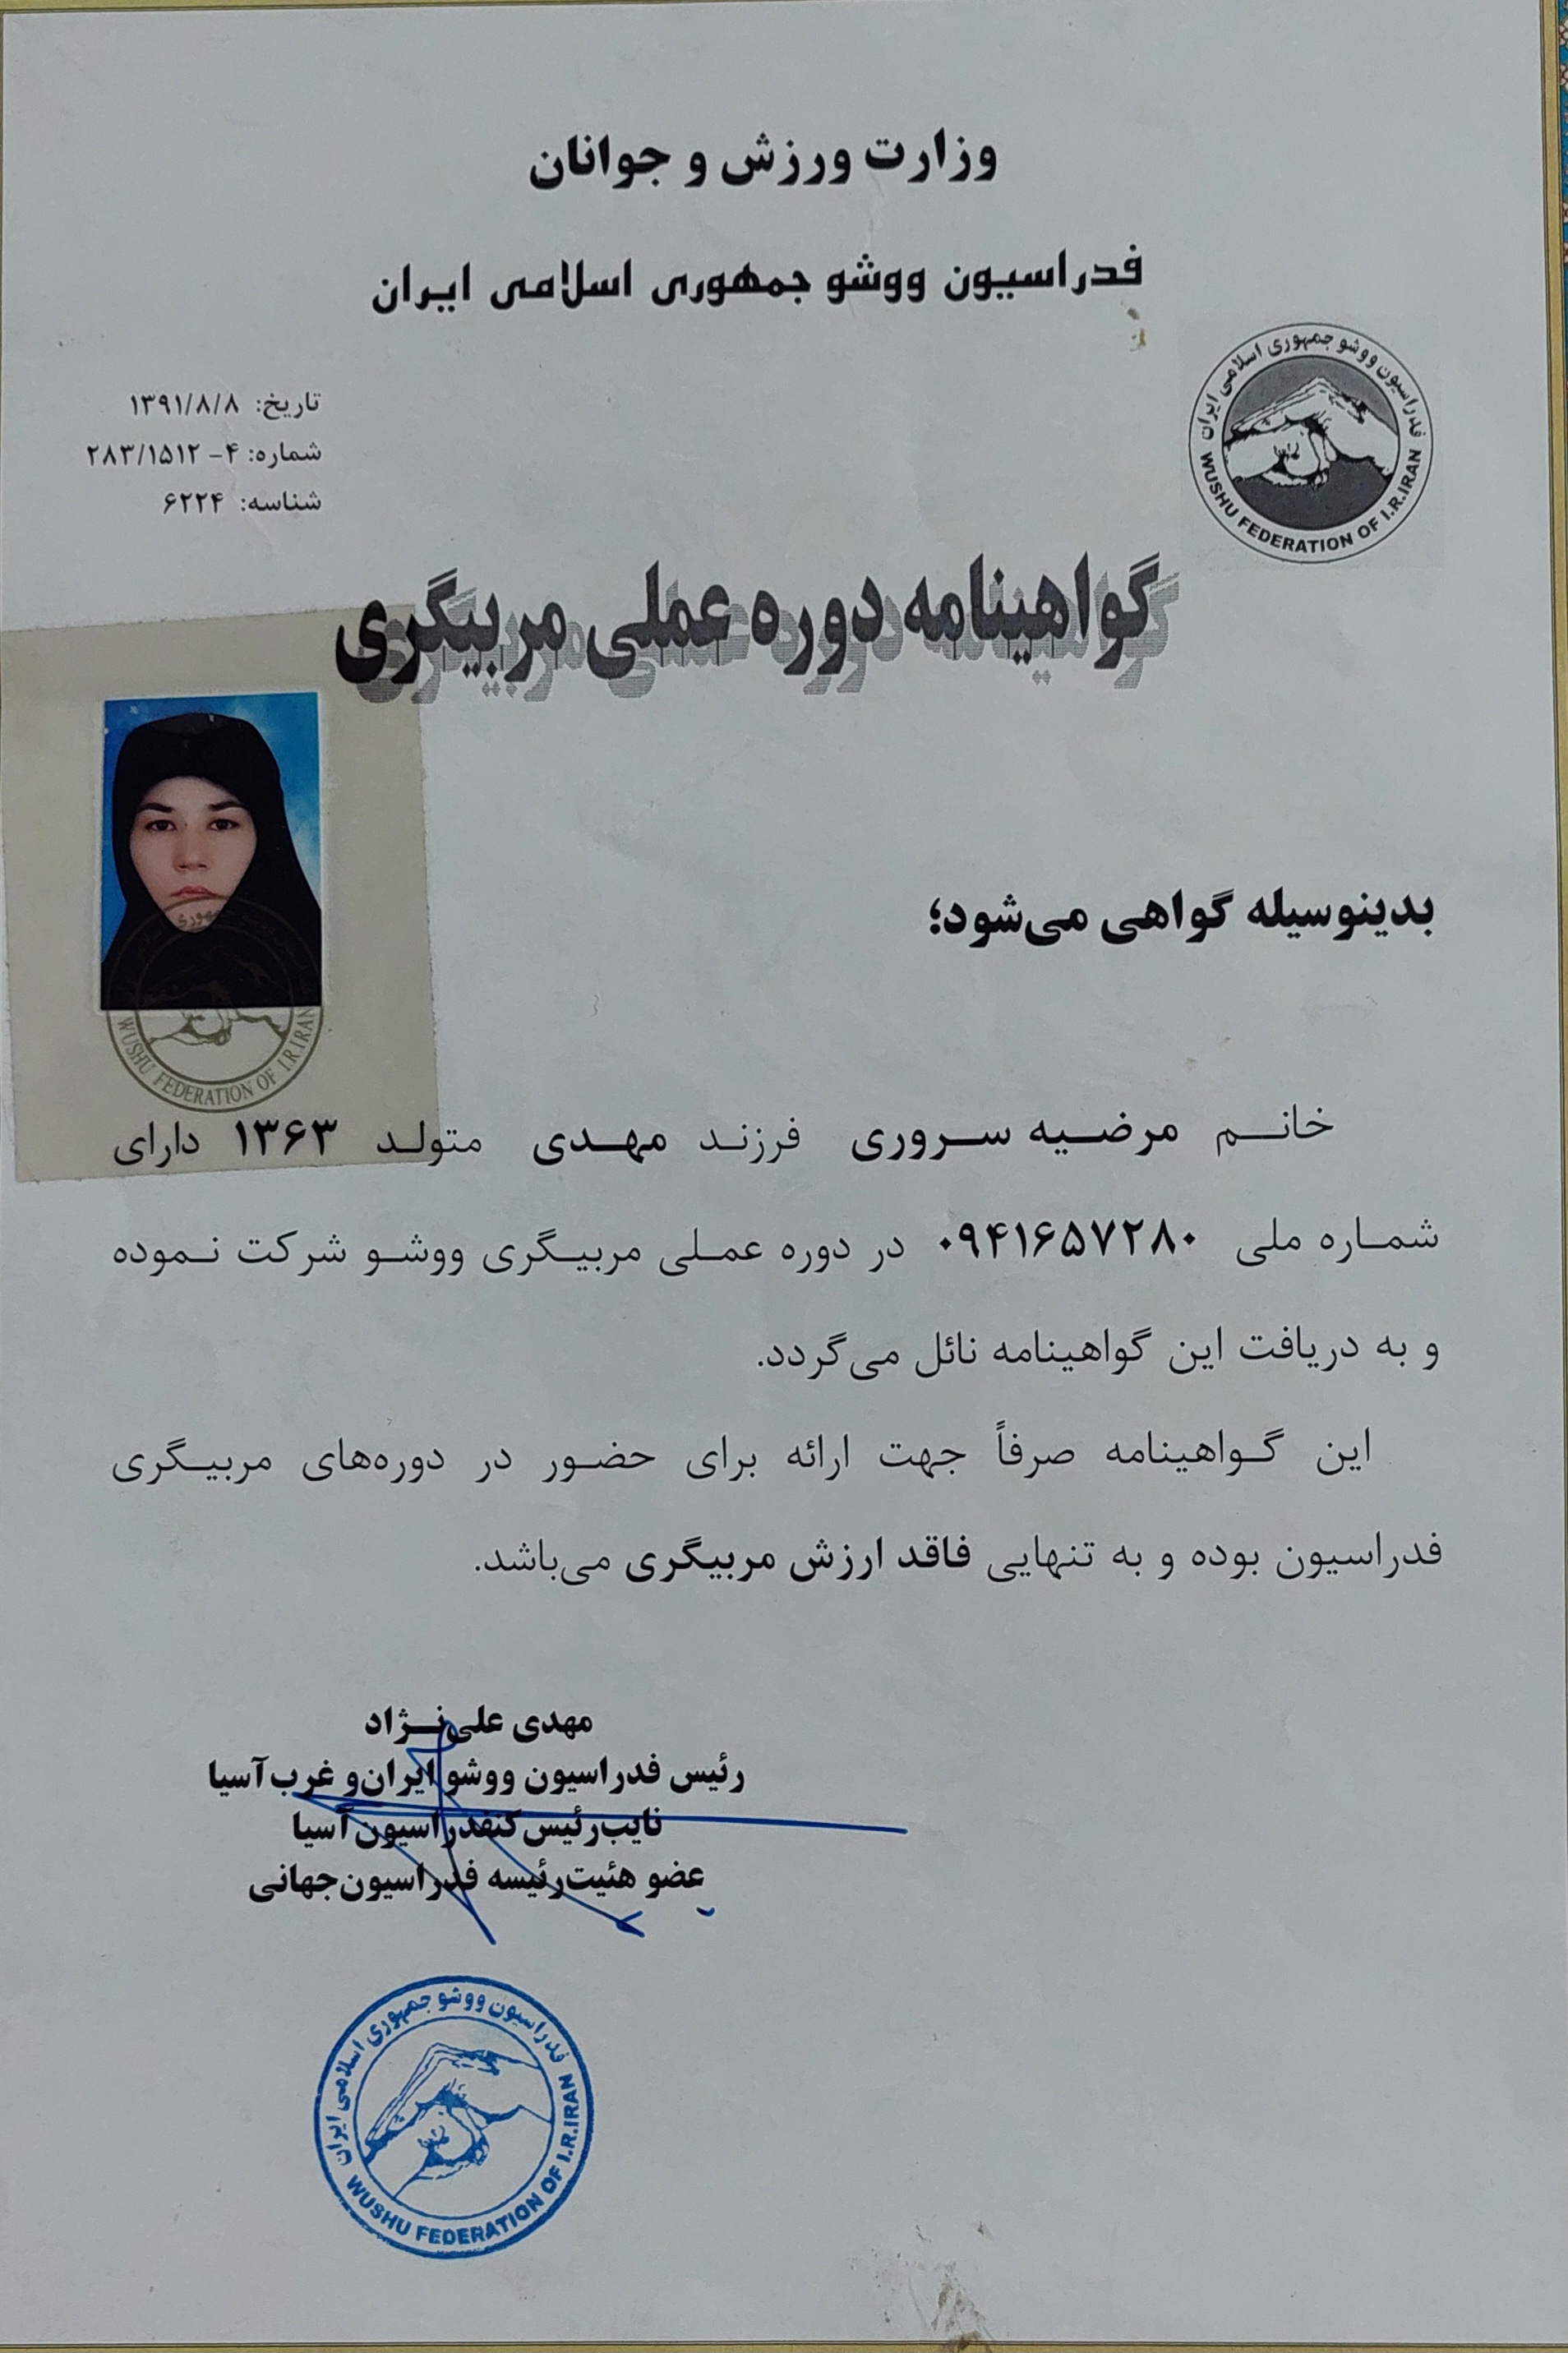 وزارت ورزش و جوانان
فدراسیون ووشو جمهوری اسلامی ایران
فدراسیون ووشو جمهوری اسلامی ایران
WUSHU FEDERATION OF I.R.IRAN
تاریخ: ۱۳۹۱/۸/۸
شماره: ۴- ۲۸۳/۱۵۱۲
شناسه: ۶۲۲۴
گواهینامه دوره عملی مربیگری
جمهوری
WUSHU FEDERATION OF I.R.IRAN
بدینوسیله گواهی می‌شود؛
خانم مرضیه سروری فرزند مهدی متولد ۱۳۶۳ دارای
شماره ملی ۰۹۴۱۶۵۷۲۸۰ در دوره عملی مربیگری ووشو شرکت نموده
و به دریافت این گواهینامه نائل می‌گردد.
این گواهینامه صرفاً جهت ارائه برای حضور در دوره‌های مربیگری
فدراسیون بوده و به تنهایی فاقد ارزش مربیگری می‌باشد.
مهدی علی‌نژاد
رئیس فدراسیون ووشو ایران و غرب آسیا
نایب‌رئیس کنفدراسیون آسیا
عضو هئیت‌رئیسه فدراسیون جهانی
فدراسیون ووشو جمهوری اسلامی ایران
WUSHU FEDERATION OF I.R.IRAN